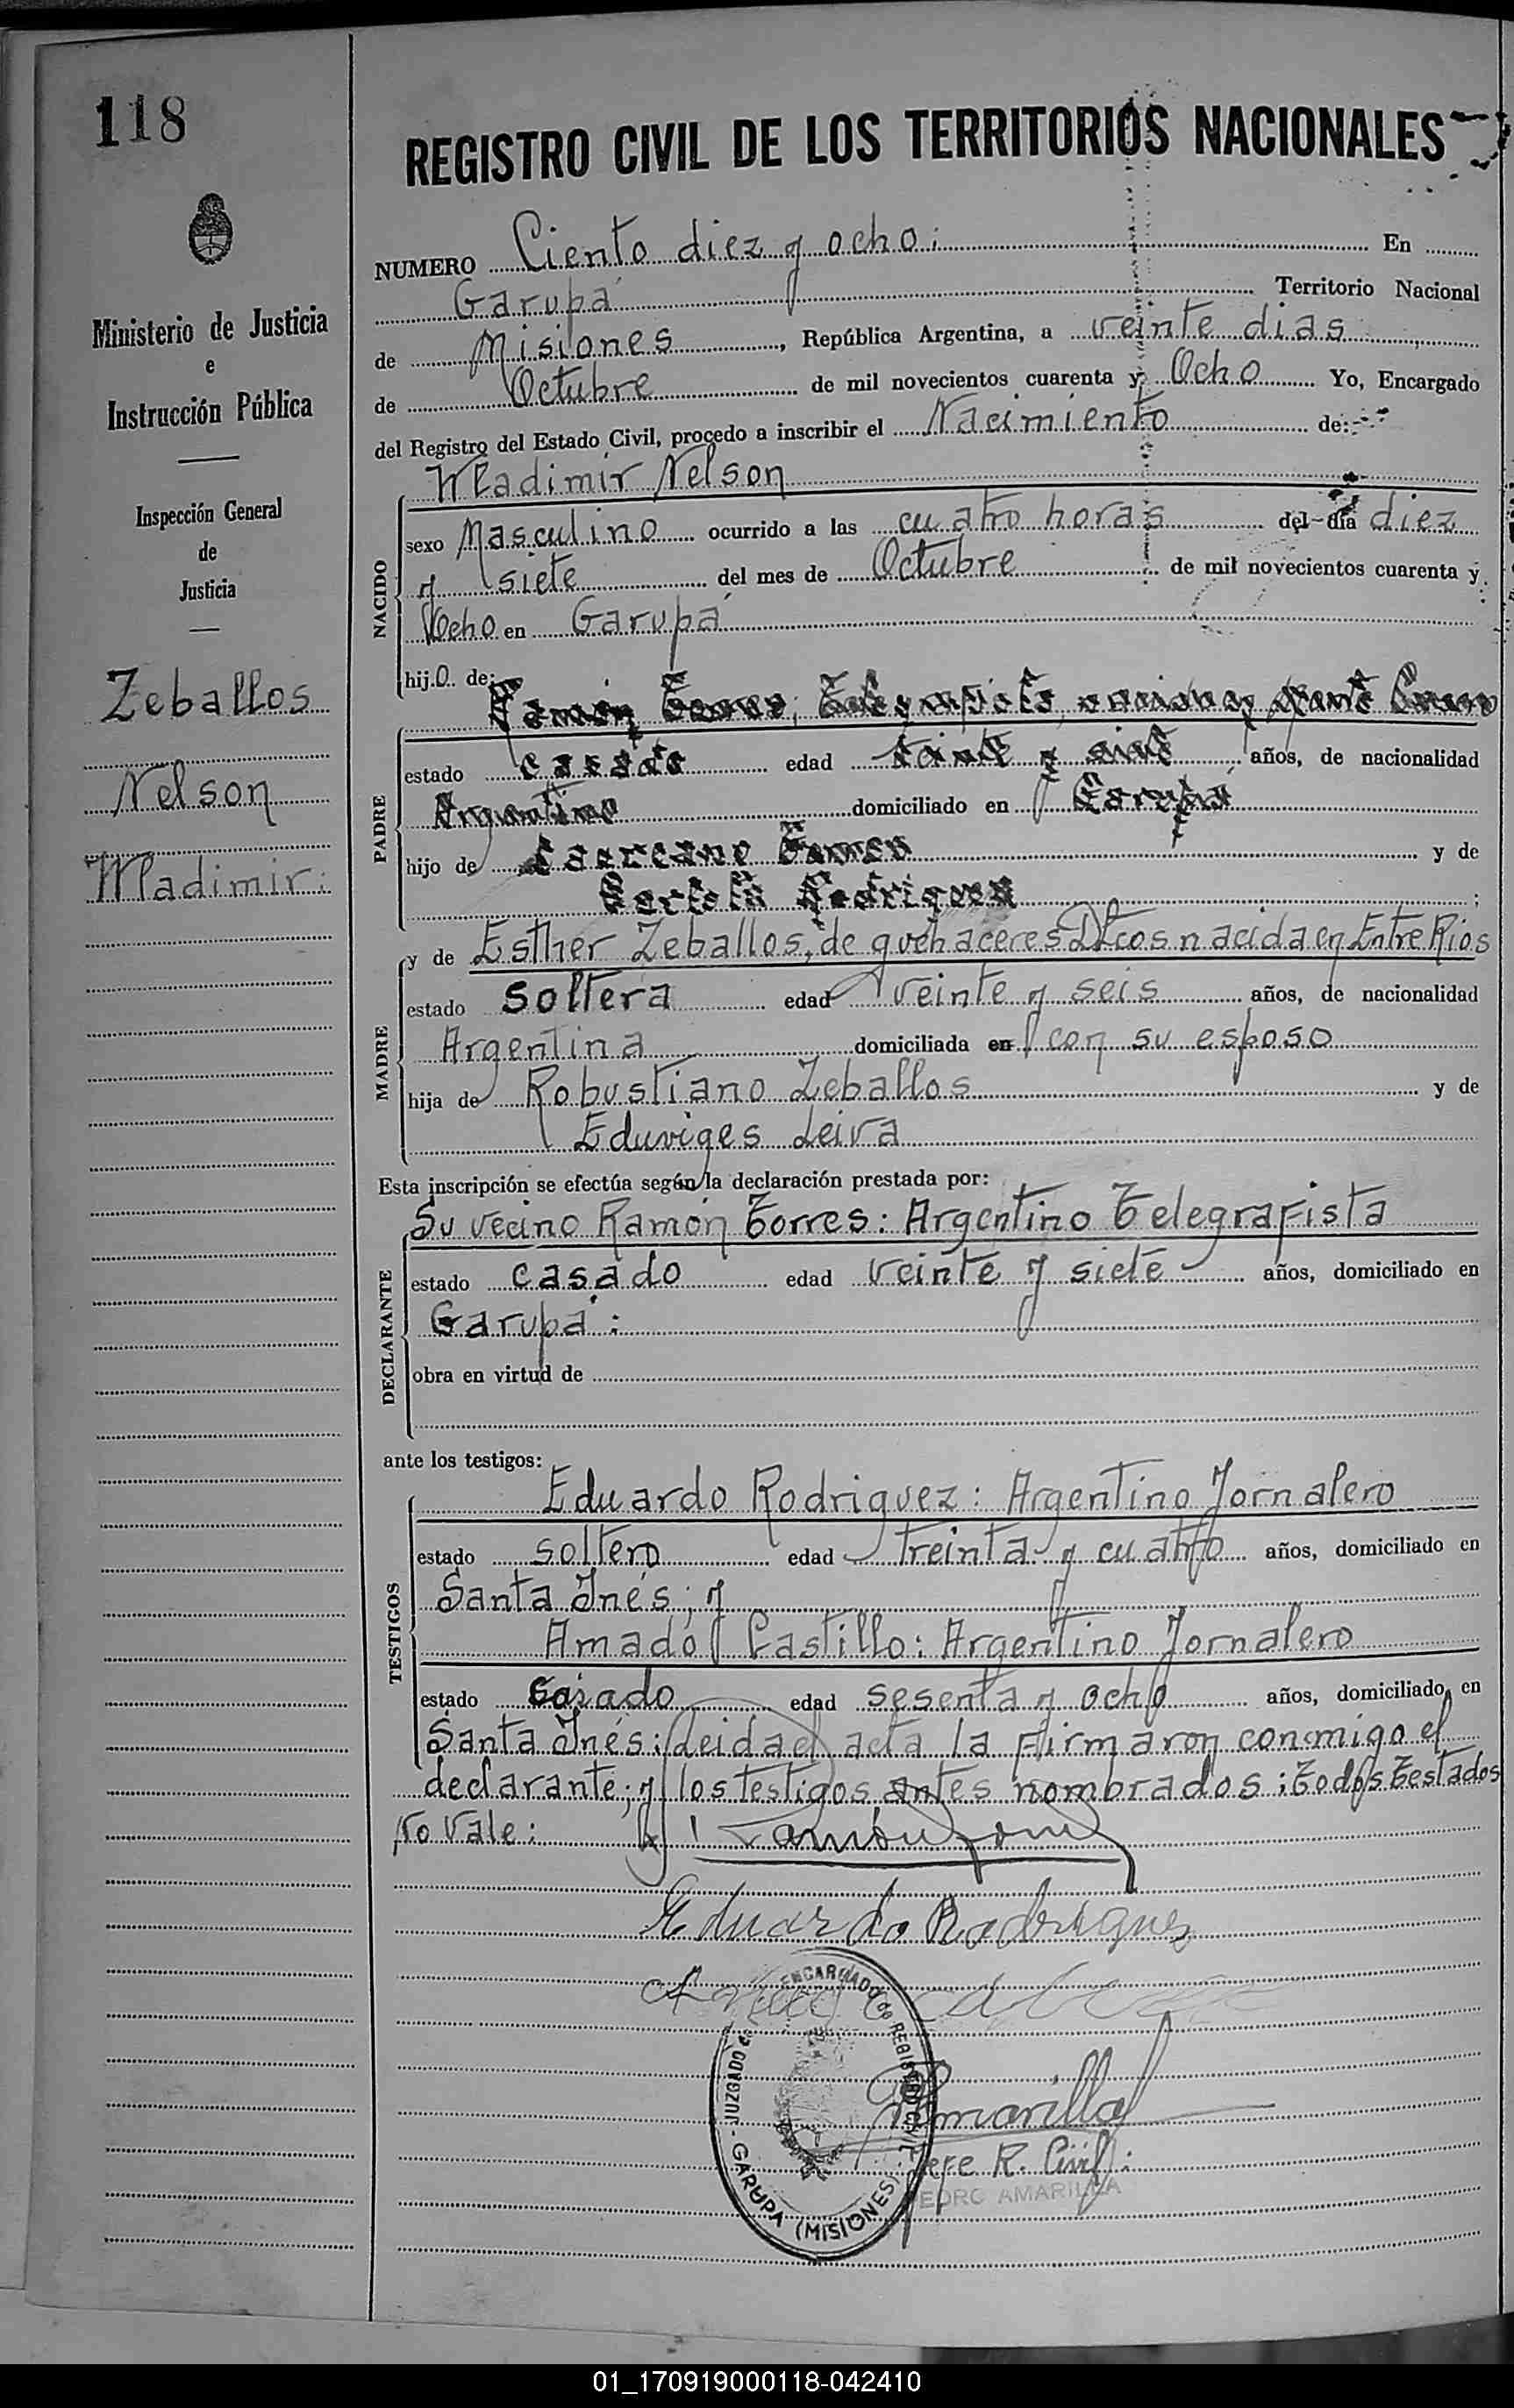 118
REGISTRO CIVIL DE LOS TERRITORIOS NACIONALES
Ministerio de Justicia
e
Instrucción Pública
Inspección General
de
Justicia
Zeballos
Nelson
Wladimir:
NUMERO Ciento diez y ocho: En
Garupá Territorio Nacional
de Misiones, República Argentina, a veinte dias
de Octubre de mil novecientos cuarenta y Ocho Yo, Encargado
del Registro del Estado Civil, procedo a inscribir el Nacimiento de:
NACIDO
Wladimir Nelson
sexo Masculino ocurrido a las cuatro horas del dia diez
y siete del mes de Octubre de mil novecientos cuarenta y
Ocho en Garupá
hijo de:
PADRE
Ramón Torres, Telegrafista
estado casado edad veinte y siete años, de nacionalidad
Argentino domiciliado en Garupá
hijo de Torres y de
Rodriguez;
MADRE
y de Esther Zeballos, de quehaceres Dtcos nacida en Entre Rios
estado soltera edad veinte y seis años, de nacionalidad
Argentina domiciliada en con su esposo
hija de Robustiano Zeballos y de
Eduviges Leiva
Esta inscripción se efectúa según la declaración prestada por:
DECLARANTE
Su vecino Ramón Torres: Argentino Telegrafista
estado casado edad veinte y siete años, domiciliado en
Garupá:
obra en virtud de
ante los testigos:
TESTIGOS
Eduardo Rodriguez: Argentino Jornalero
estado soltero edad treinta y cuatro años, domiciliado en
Santa Inés; y
Amado Castillo: Argentino Jornalero
estado casado edad sesenta y ocho años, domiciliado en
Santa Inés: leida el acta la firmaron conmigo el
declarante; y los testigos antes nombrados: Todos Testados
No Vale:
Eduardo Rodrigues
Amarilla
Jefe R. Civil:
PEDRO AMARILLA
JUZGADO ENCARGADO de REGISTRO CIVIL - GARUPA (MISIONES)
01_170919000118-042410